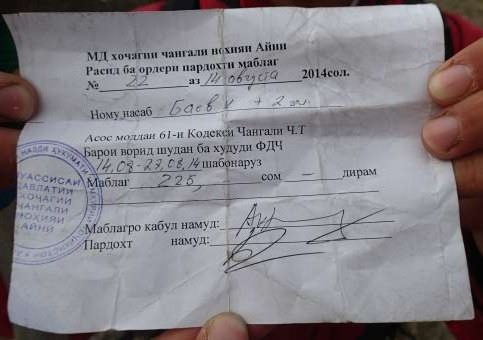 МД хочагии чангали нохияи Айни
Расид ба ордери пардохти маблаг
№ 22 аз 14 августа 2014сол.
Ному насаб Баев К + 2 чел.
Асос моддаи 61-и Кодекси Чангали Ч.Т
Барои ворид шудан ба худуди ФДЧ
14,08-27,08,14 шабонаруз
Маблаг 225, сом — дирам
Маблагро кабул намуд:
Пардохт намуд:
МУАССИСАИ
ДАВЛАТИИ
ХОЧАГИИ
ЧАНГАЛИ
НОХИЯИ
АЙНИ